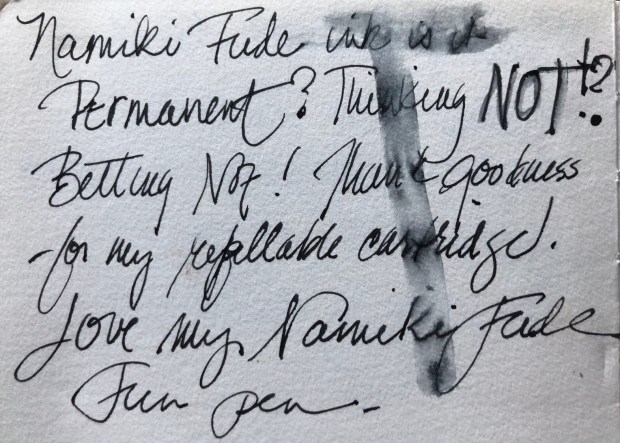 Namiki Fude ink is it
Permanent? Thinking NOT!?
Betting Not! Thank goodness
for my refillable cartridge.
Love my Namiki Fude
Fun pen.